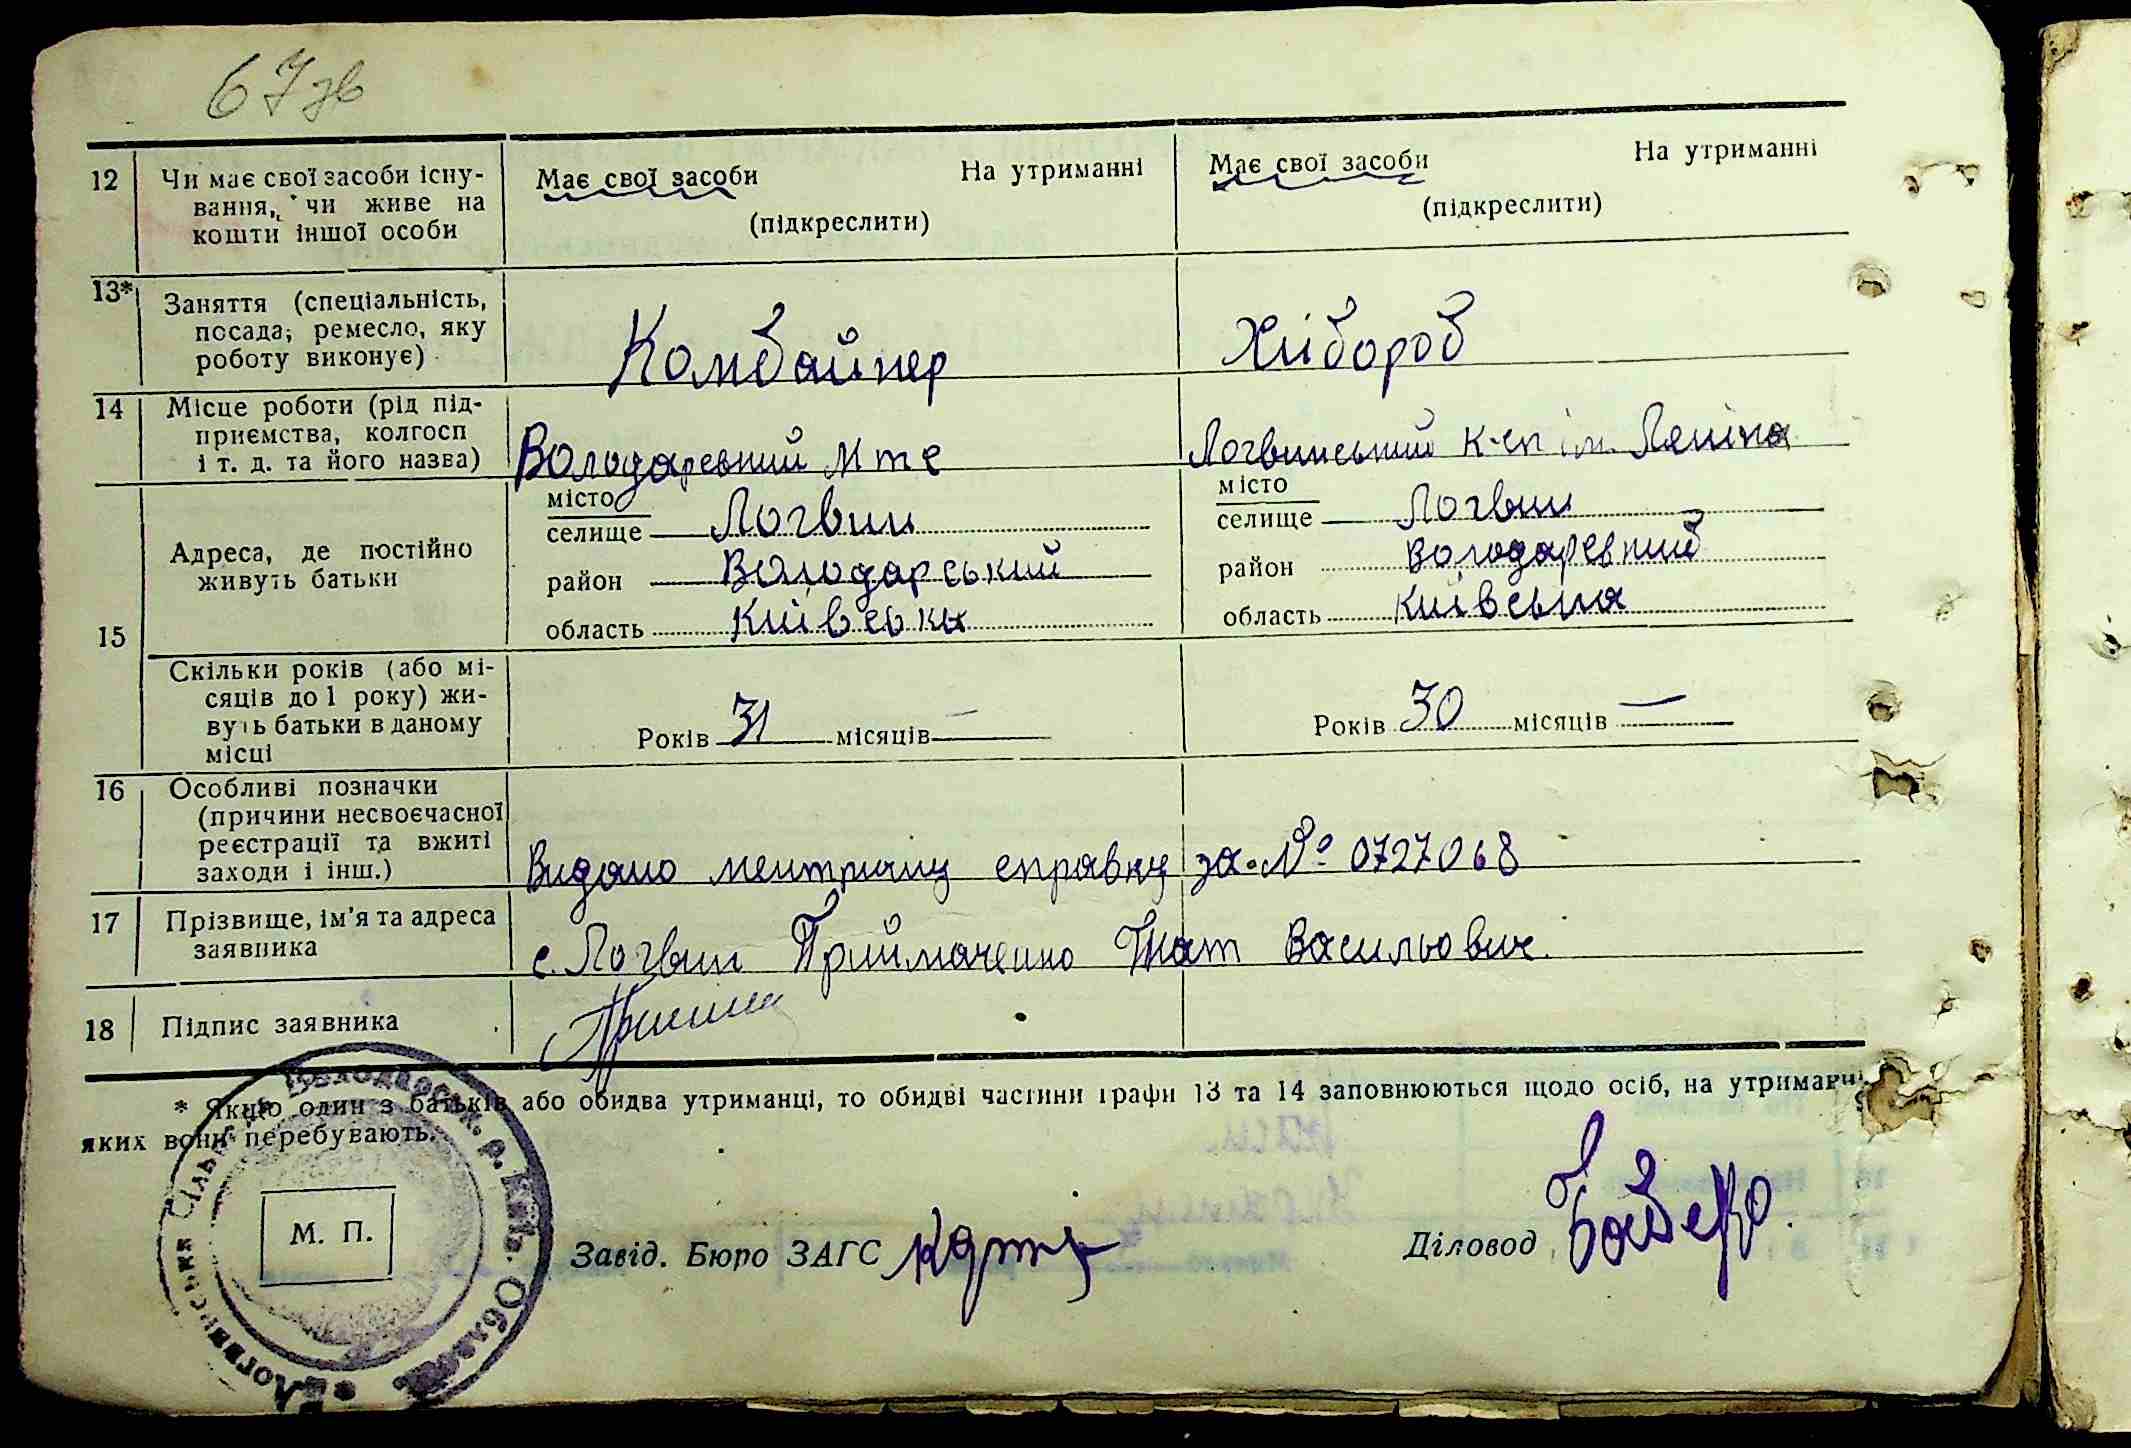 67 зв
12 Чи має свої засоби існу- Має свої засоби На утриманні Має свої засоби На утриманні
вання, чи живе на (підкреслити) (підкреслити)
кошти іншої особи
13* Заняття (спеціальність,
посада, ремесло, яку
роботу виконує) Комбайнер Хлібороб
14 Місце роботи (рід під-
приємства, колгосп
і т. д. та його назва) Володарський Мтс Логвинський к-сп ім. Леніна
15 Адреса, де постійно
живуть батьки
місто
селище Логвин місто
селище Логвин
район Володарський район Володарський
область Київська область Київська
Скільки років (або мі-
сяців до 1 року) жи-
вуть батьки в даному Років 31 місяців — Років 30 місяців —
місці
16 Особливі позначки
(причини несвоєчасної
реєстрації та вжиті
заходи і інш.) Видано метричну справку за № 0727068
17 Прізвище, ім'я та адреса
заявника с. Логвин Приймаченко Васильович.
18 Підпис заявника
* Якщо один з батьків або обидва утриманці, то обидві частини графи 13 та 14 заповнюються щодо осіб, на утриманні
яких вони перебувають.
Логвинська Сільрада Володарськ. р. Київ. Області
М. П.
Завід. Бюро ЗАГС
Діловод